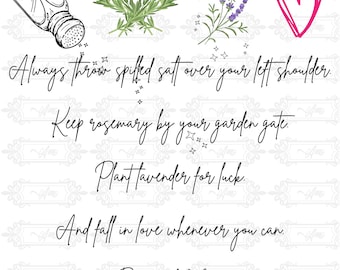 Always throw spilled salt over your left shoulder.
Keep rosemary by your garden gate.
Plant lavender for luck.
And fall in love whenever you can.